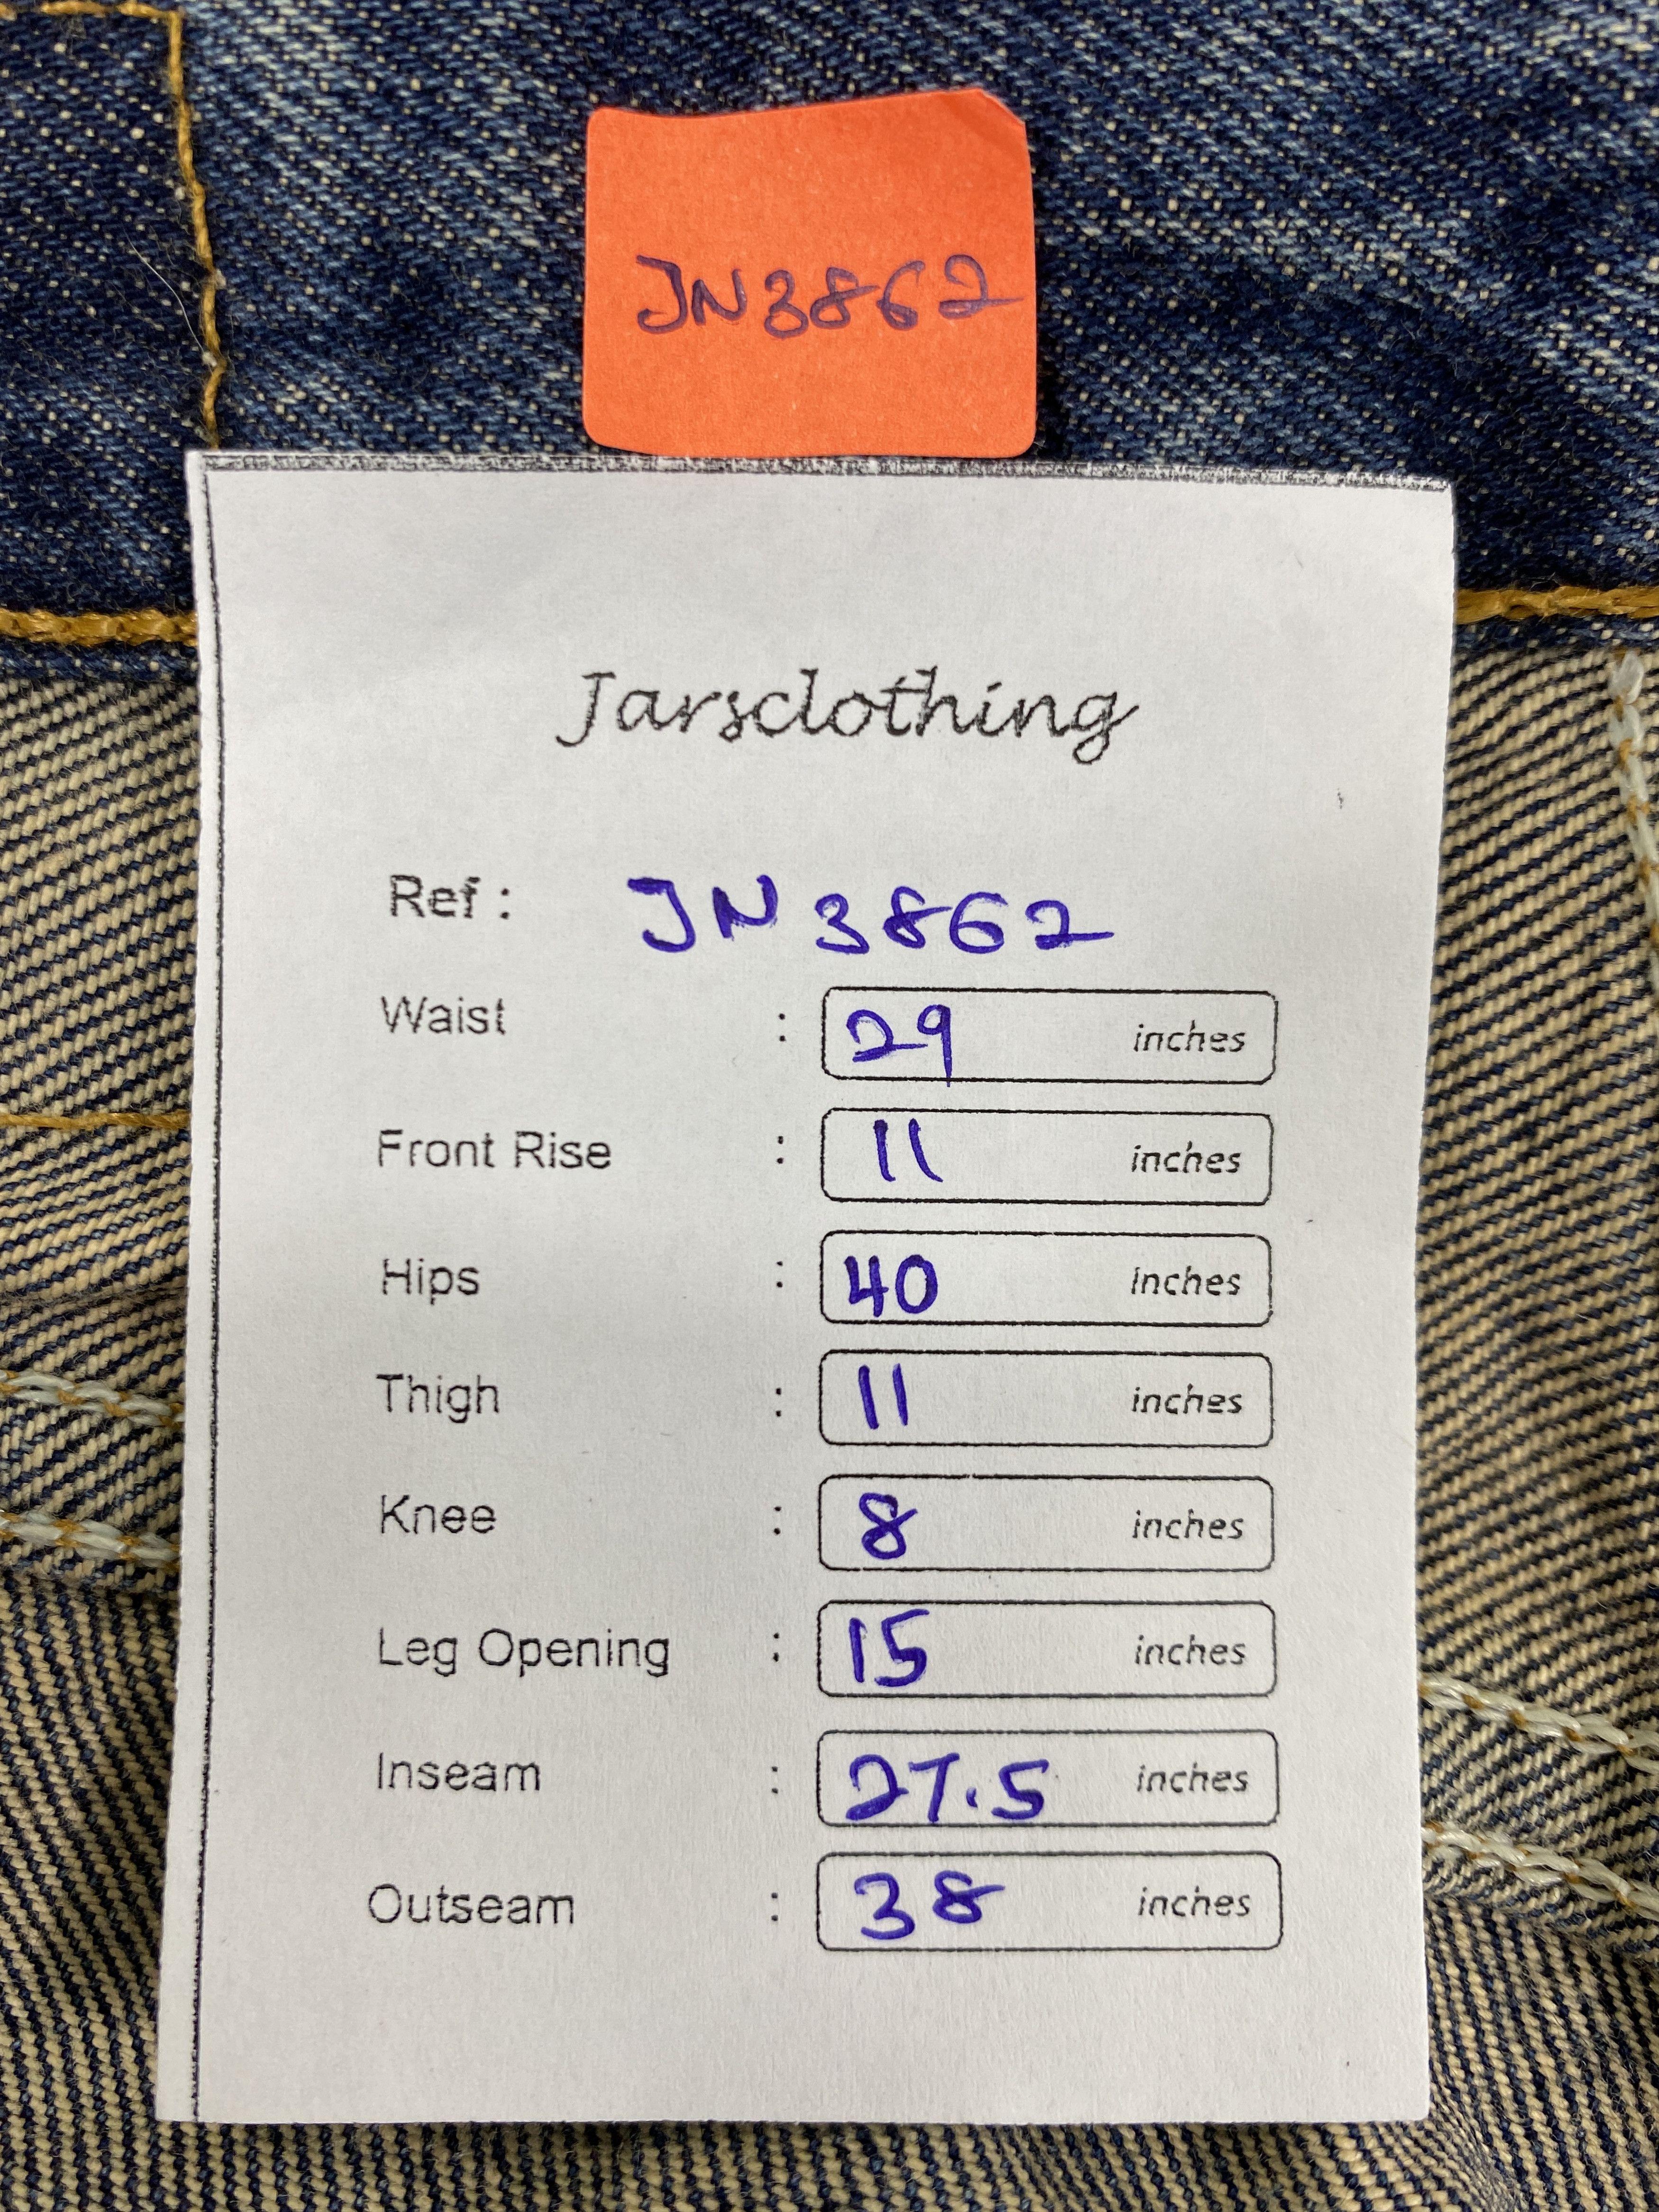 JN3862
Jarsclothing
Ref : JN 3862
Waist : 29 inches
Front Rise : 11 inches
Hips : 40 inches
Thigh : 11 inches
Knee : 8 inches
Leg Opening : 15 inches
Inseam : 27.5 inches
Outseam : 38 inches